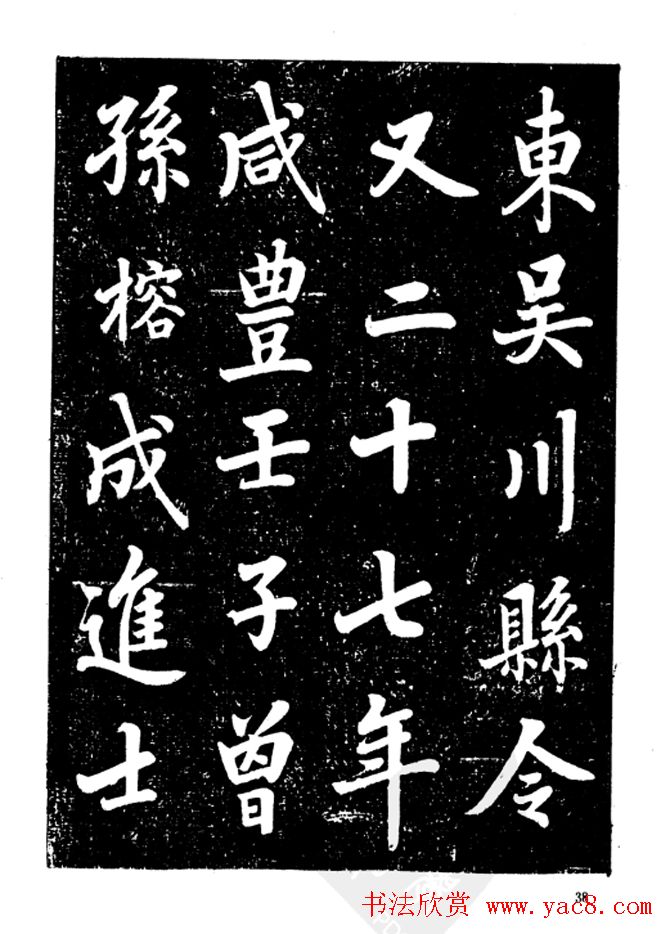 東吴川縣令
又二十七年
咸豊壬子曾
孫榕成進士
38
书法欣赏 www.yac8.com